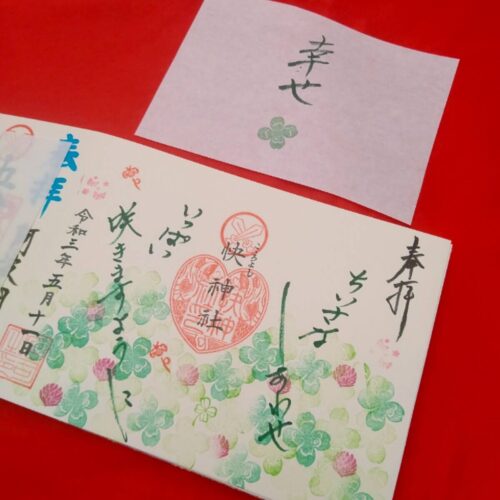 幸せ
奉拝
ちいさな
しあわせ
こころよし
快神社
いっぱい
咲きますように
令和三年五月十一日
奉拝